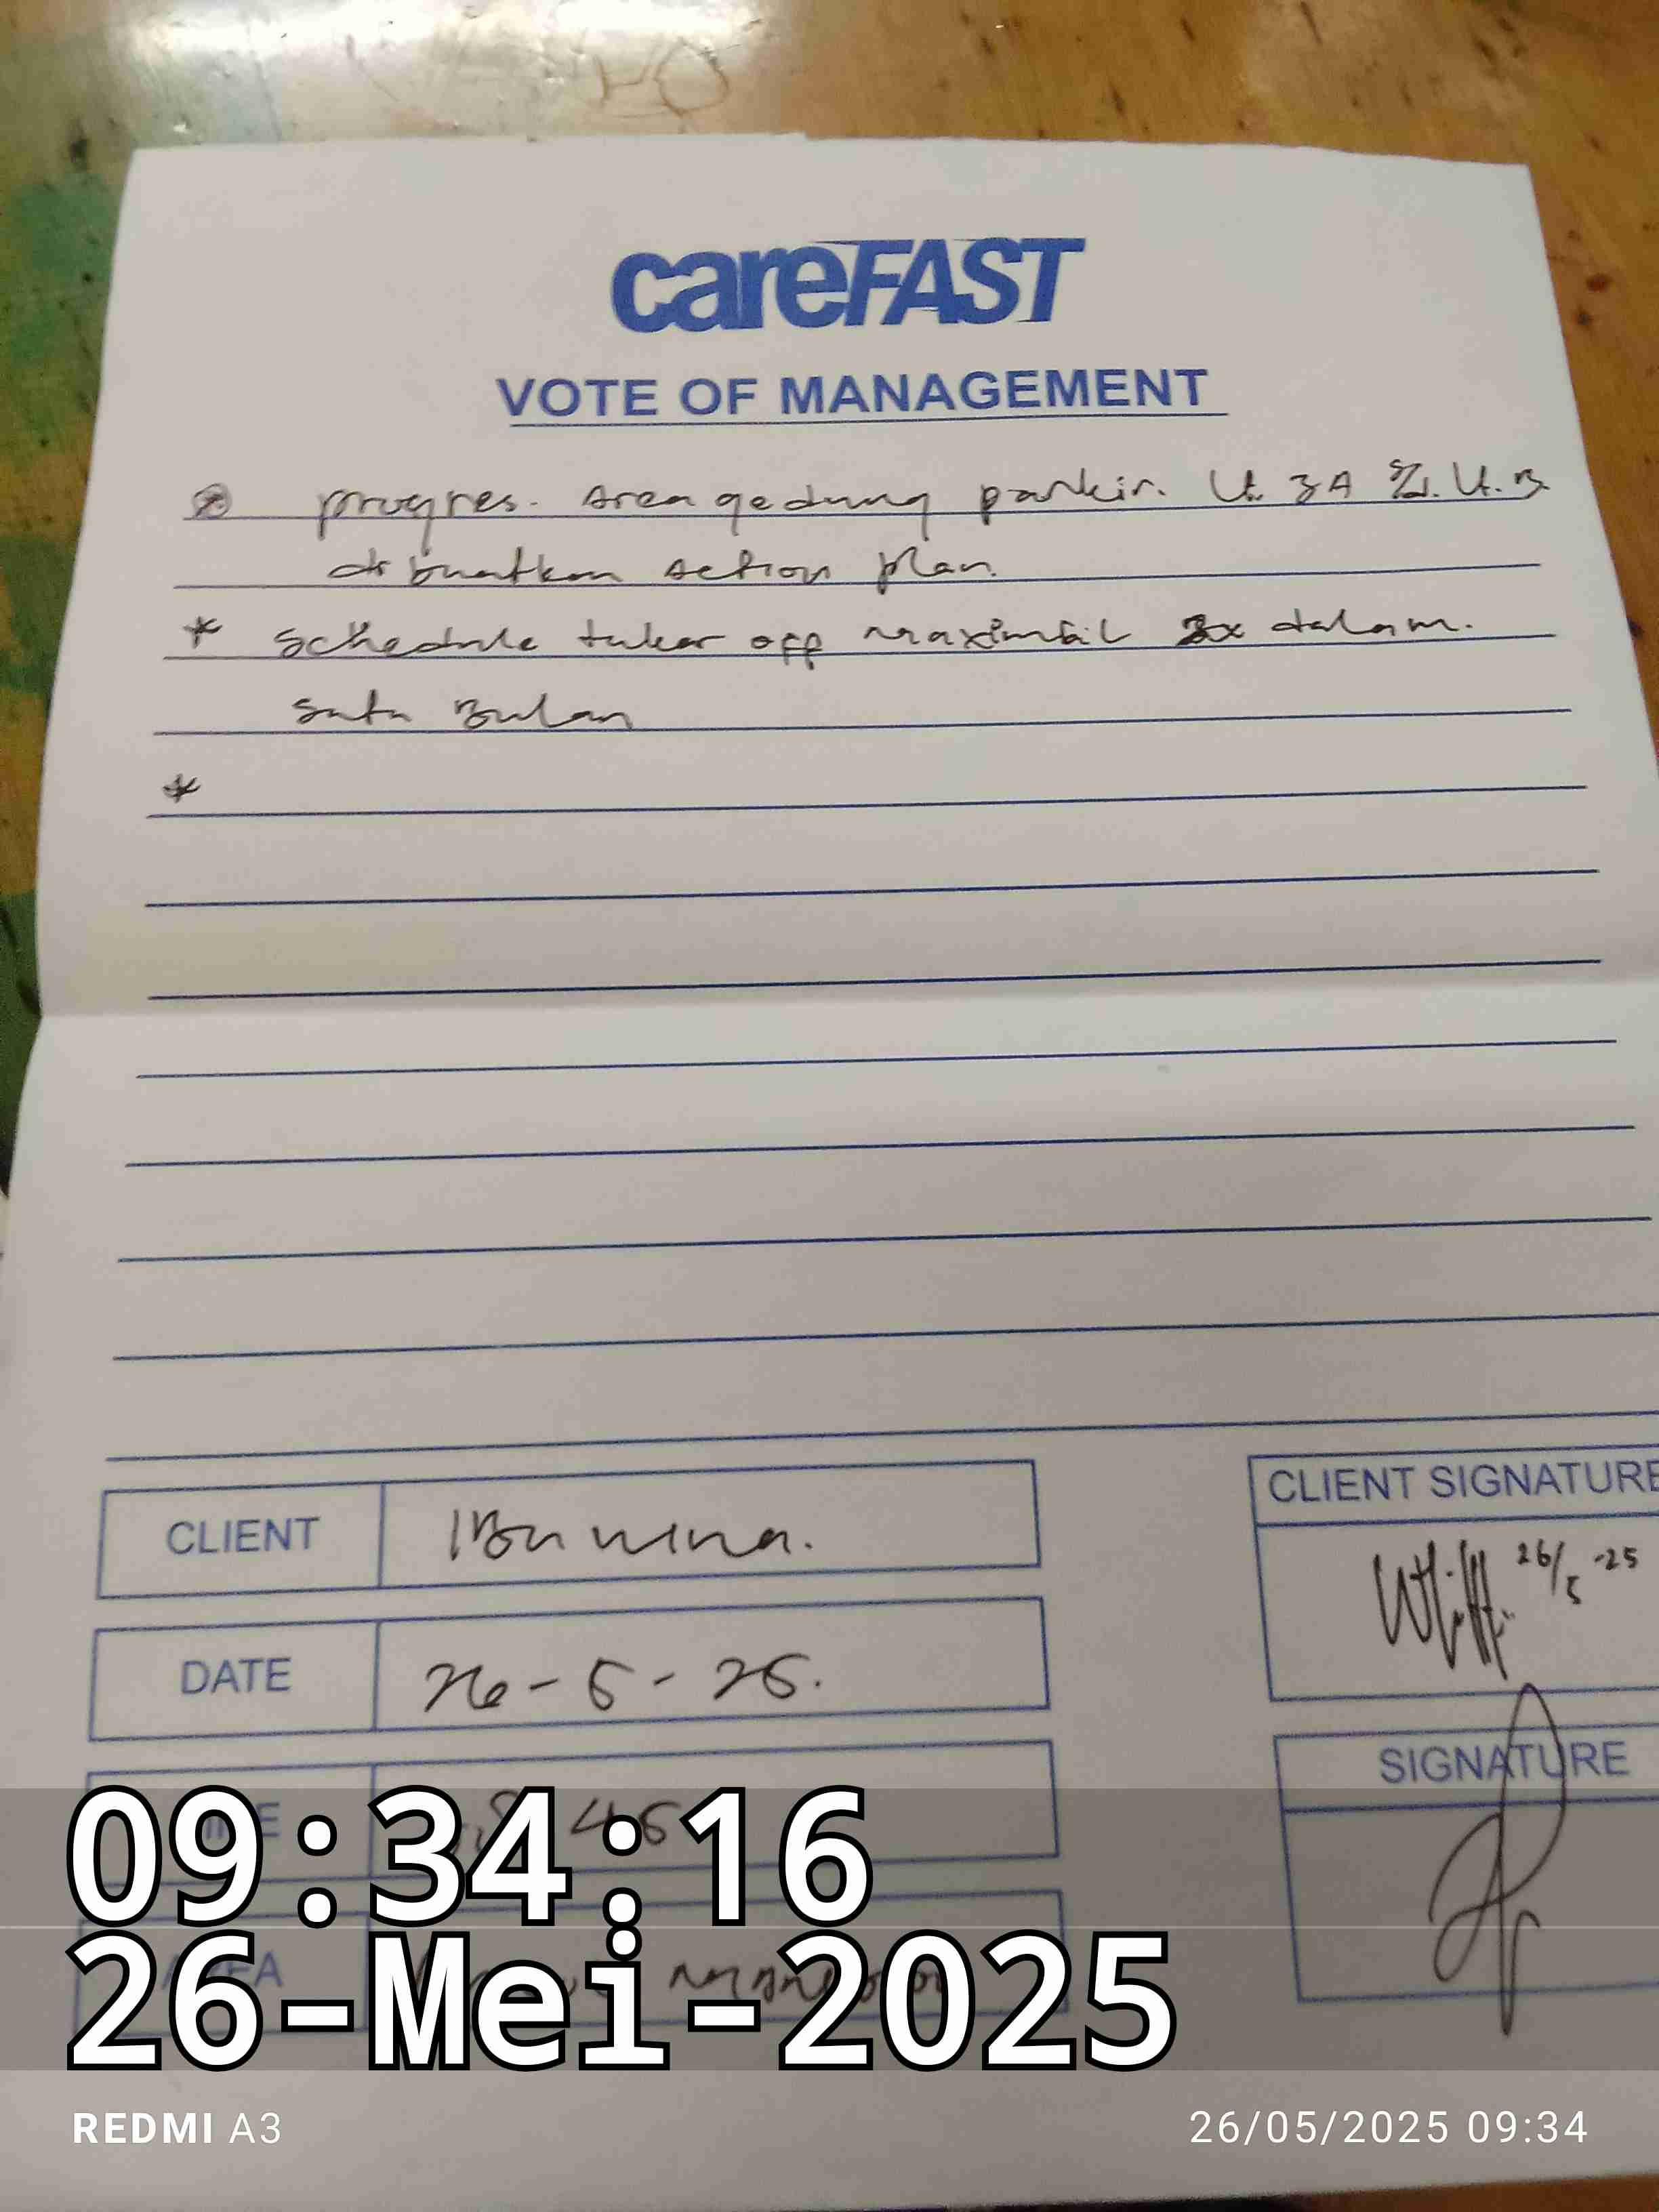 careFAST
VOTE OF MANAGEMENT
progres. Area gedung parkir. Lt. 3A S/d. Lt. B.
dibuatkan action plan.
* schedule tukar off maximail 2x dalam.
satu Bulan
*
CLIENT
Ibu nina.
CLIENT SIGNATURE
26/5 -25
DATE
26-5-25.
SIGNATURE
09:34:16
26-Mei-2025
REDMI A3
26/05/2025 09:34